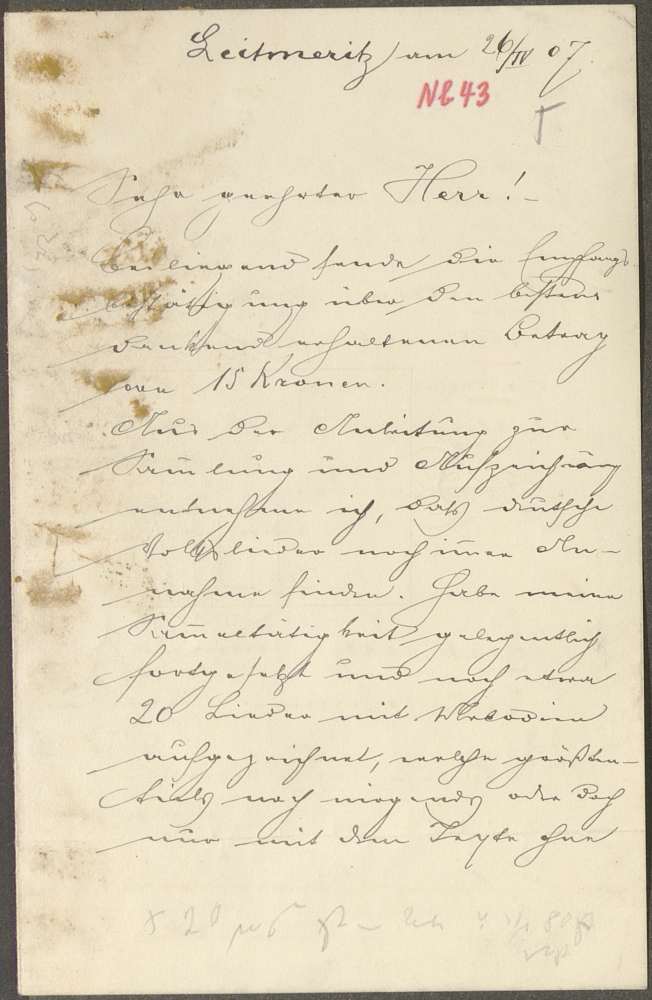 Leitmeritz am 26/IV 07.
Nr 43
Sehr geehrter Herr! –
Beiliegend sende die Empfangs-
bestätigung über den bestens
dankend erhaltenen Betrag
von 15 Kronen.
Aus der Anleitung zur
Sammlung und Aufzeichnung
entnehme ich, daß deutsche
Volkslieder noch immer An-
nahme finden. Habe meine
Sammeltätigkeit gelegentlich
fortgesetzt und noch etwa
20 Lieder mit Melodien
aufgezeichnet, welche größten-
teils noch nirgends oder doch
nur mit dem Texte ohne